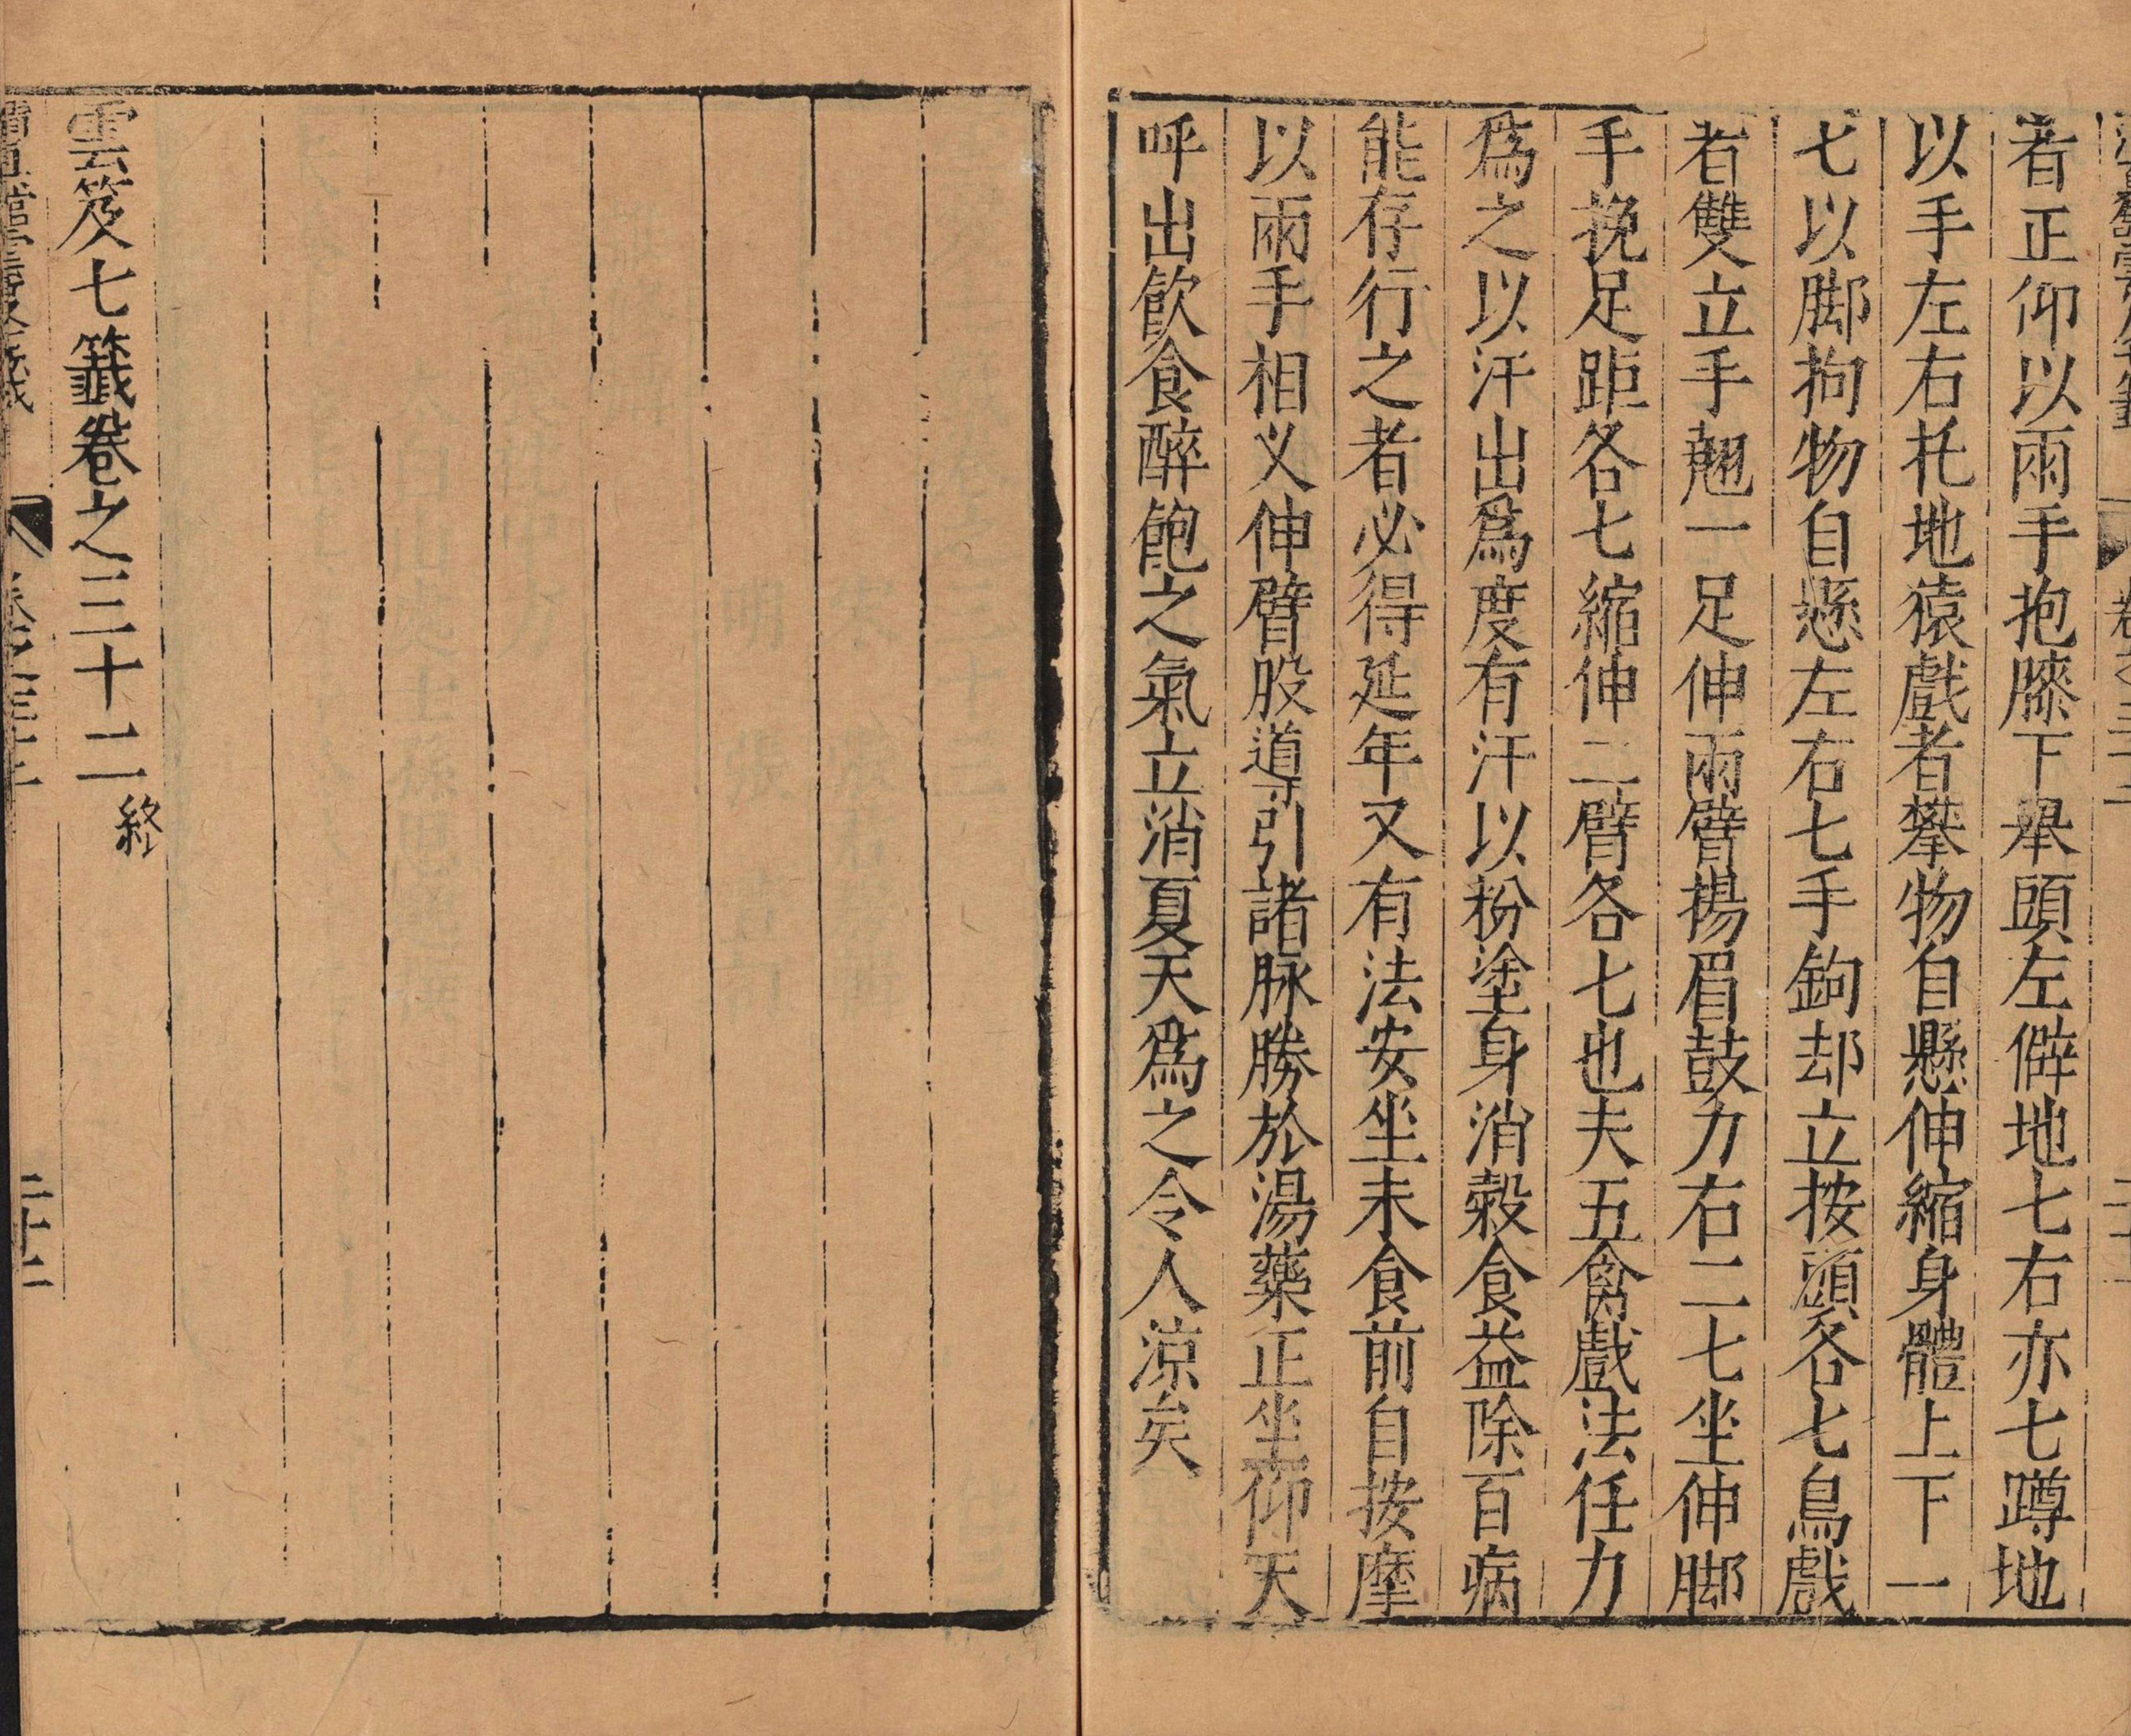 者正仰以兩手抱膝下舉頭左僻地七右亦七蹲地
以手左右托地猿戲者攀物自懸伸縮身體上下一
七以脚拘物自懸左右七手鉤却立按頭各七鳥戲
者雙立手翹一足伸兩臂揚眉鼓力右二七坐伸脚
手挽足距各七縮伸二臂各七也夫五禽戲法任力
爲之以汗出爲度有汗以粉塗身消榖食益除百病
能存行之者必得延年又有法安坐未食前自按摩
以兩手相义伸臂股導引諸脉勝於湯藥正坐仰天
呼出飲食醉飽之氣立消夏天爲之令人涼矣
雲笈七籤卷之三十二終